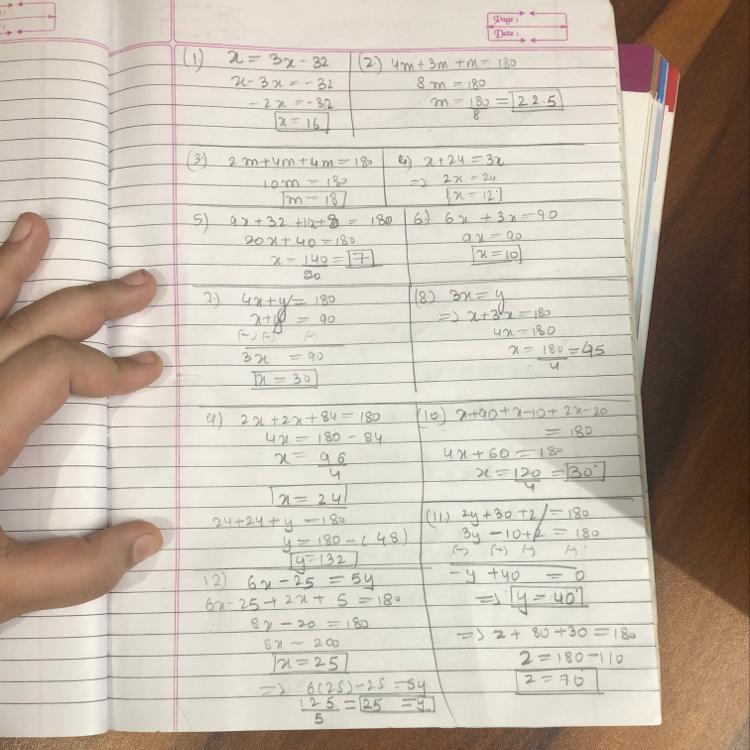 Page:
Date:
(1) x = 3x - 32
x - 3x = -32
-2x = -32
x = 16
(2) 4m + 3m + m = 180
8m = 180
m = 180/8 = 22.5
(3) 2m + 4m + 4m = 180
10m = 180
m = 18
4) x + 24 = 3x
=> 2x = 24
x = 12
5) 9x + 32 + 11x + 8 = 180
20x + 40 = 180
x = 140/20 = 7
6) 6x + 3x = 90
9x = 90
x = 10
7) 4x + y = 180
x + y = 90
(-) (-) (-)
3x = 90
x = 30
(8) 3x = y
=> x + 3x = 180
4x = 180
x = 180/4 = 45
9) 2x + 2x + 84 = 180
4x = 180 - 84
x = 96/4
x = 24
24 + 24 + y = 180
y = 180 - (48)
y = 132
(10) x + 90 + x - 10 + 2x - 20
= 180
4x + 60 = 180
x = 120/4 = 30°
(11) 2y + 30 + z = 180
3y - 10 + z = 180
(-) (+) (-) (-)
-y + 40 = 0
=> y = 40°
=> z + 80 + 30 = 180
z = 180 - 110
z = 70°
12) 6x - 25 = 5y
6x - 25 + 2x + 5 = 180
8x - 20 = 180
8x - 200
x = 25
=> 6(25) - 25 = 5y
125/5 = 25 = y